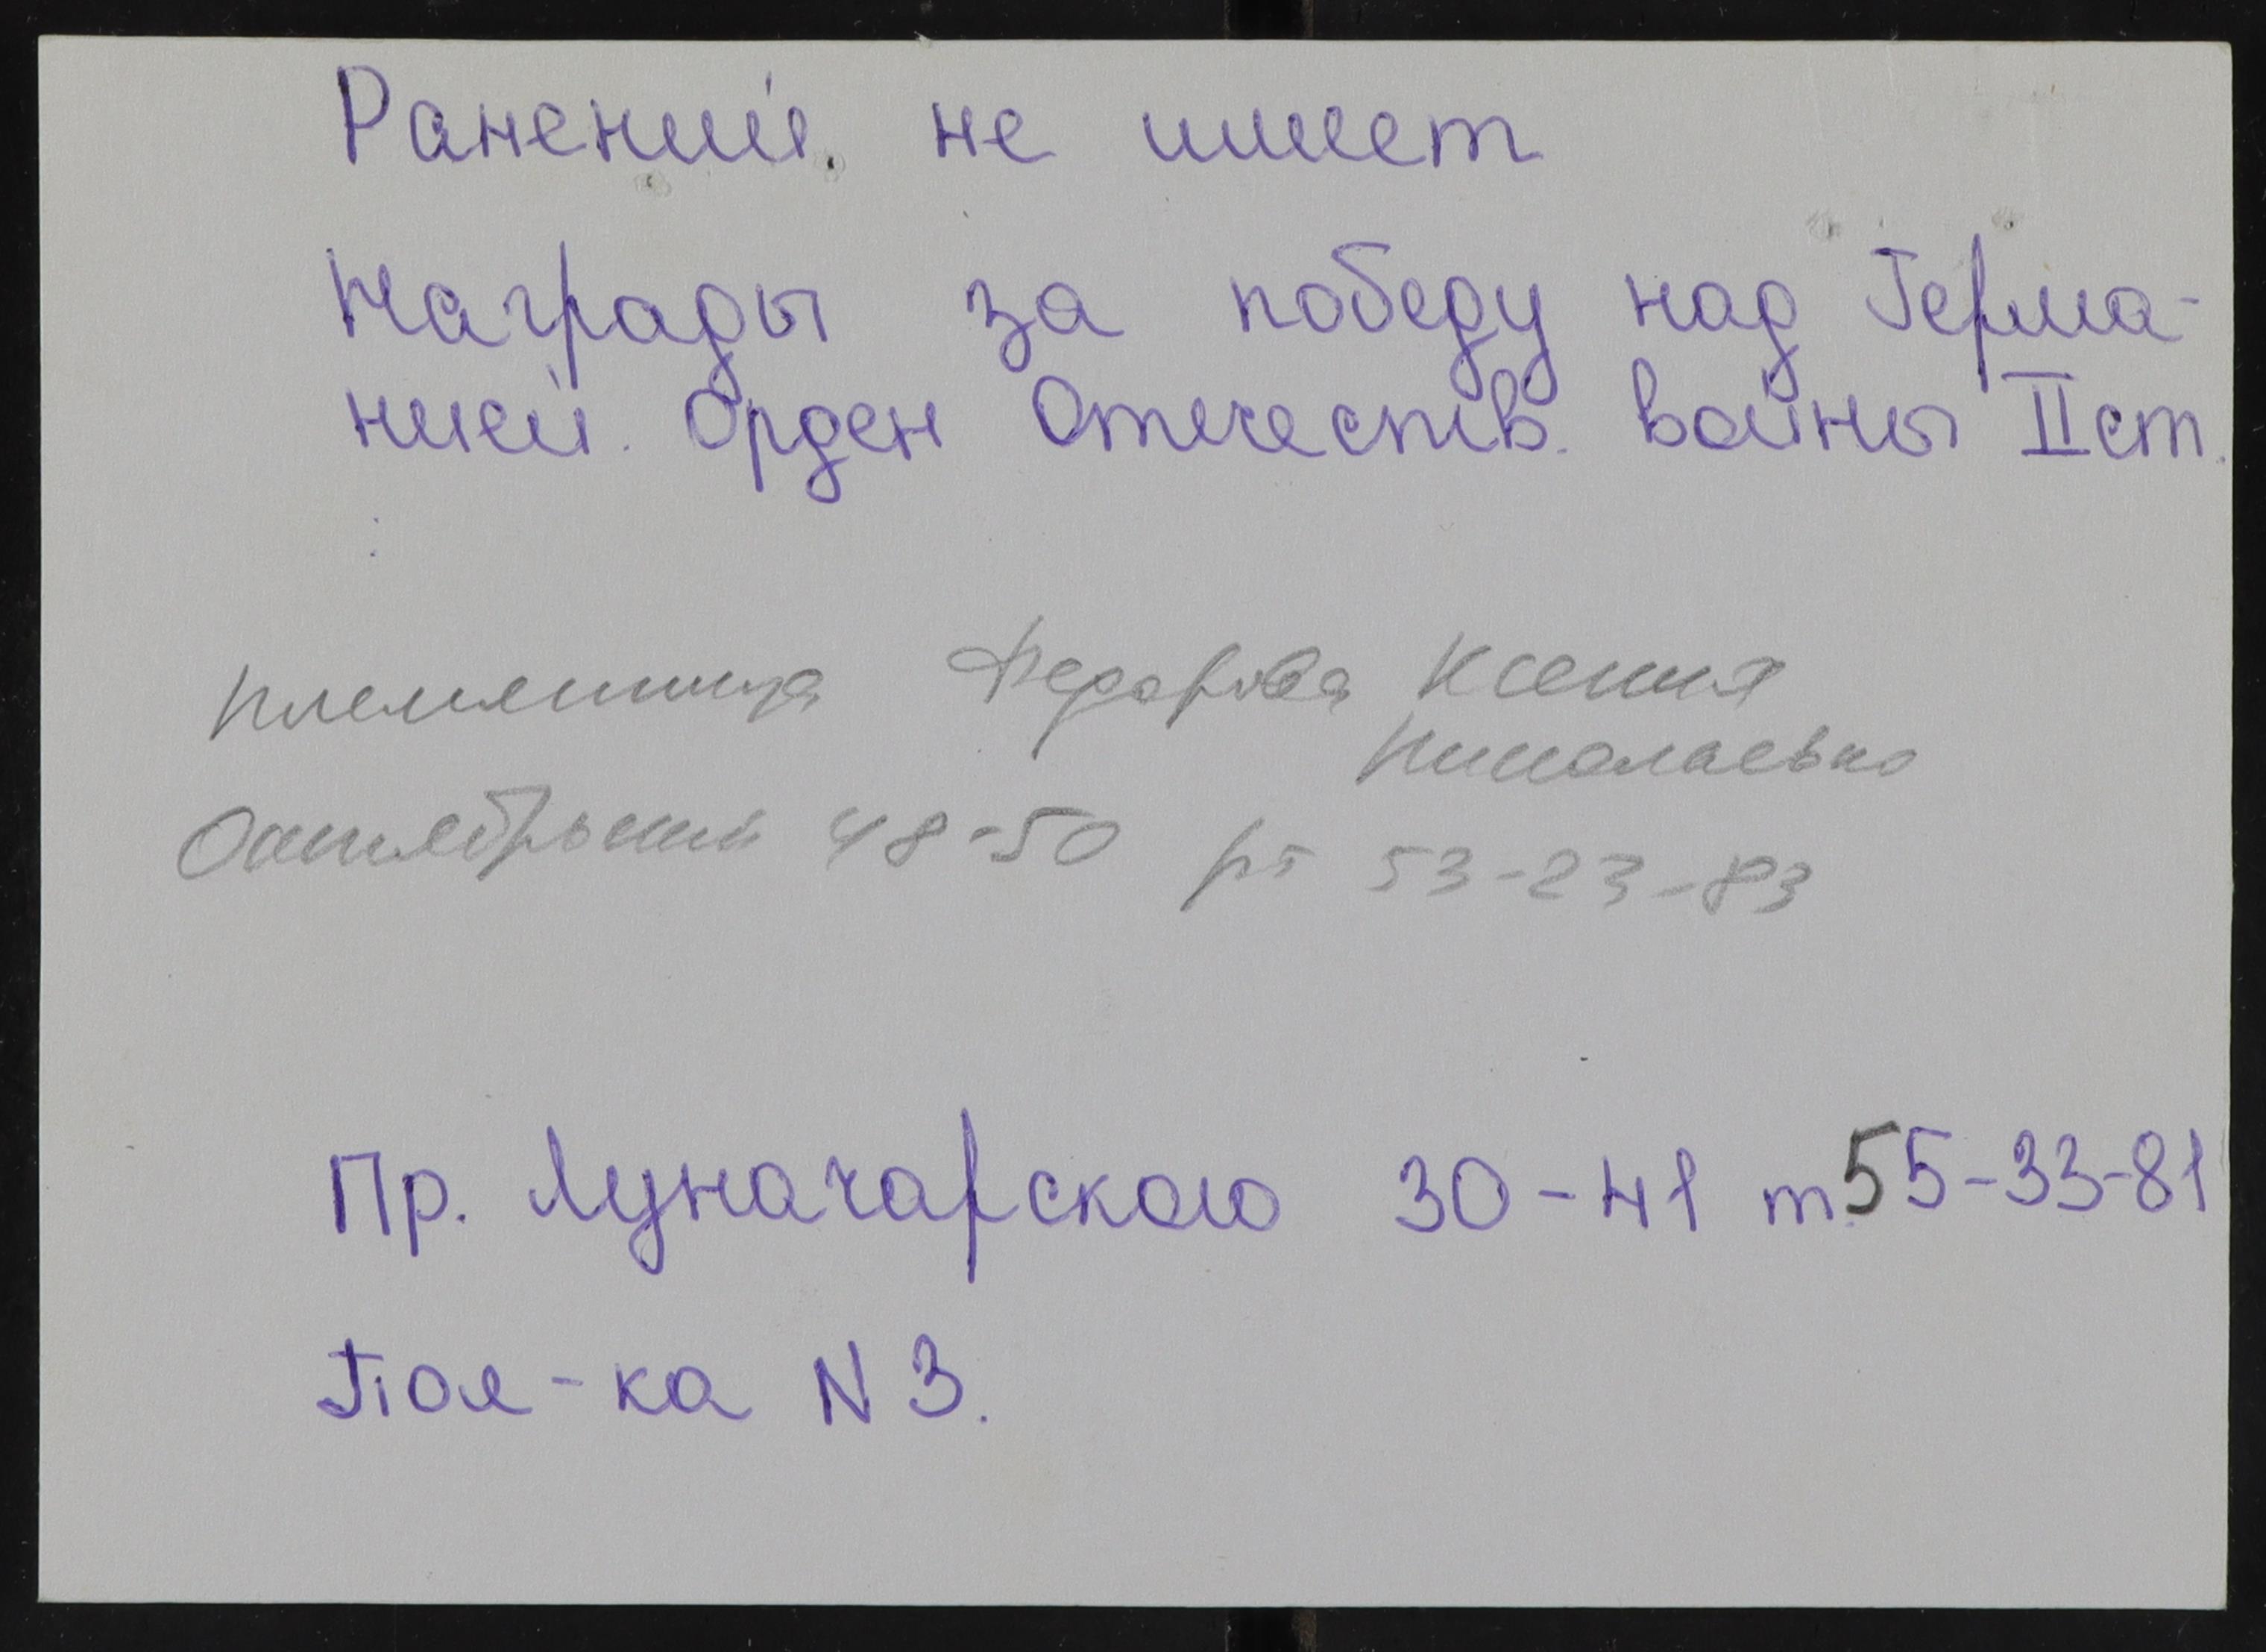 Ранений не имеет
Награды за победу над Герма-
нией. Орден Отечеств. войны II ст.
племянница Федорова Ксения
Николаевна
Октябрьский 48-50 рт 53-23-83
Пр. Луначарского 30-41 т. 55-33-81
Пол-ка N 3.